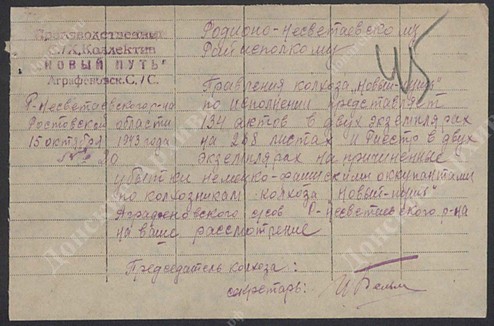 Производственный
С/Х. Коллектив
"НОВЫЙ ПУТЬ"
Аграфеновск. С/С.
Р-Несветаевского р-на
Ростовской области
15 октября 1943 года
№ 20
45
Родионо-Несветаевскому
Райисполкому
Правления колхоза "Новый-путь"
по исполнении представляет
134 актов в двух экземплярах
на 268 листах и Реестр в двух
экземплярах на причиненные
убытки немецко-фашискими оккупантами
по колхозникам колхоза "Новый-путь"
Аграфеновского с/сов Р-Несветаевского р-на
на ваше рассмотрение
Председатель колхоза:
секретарь: